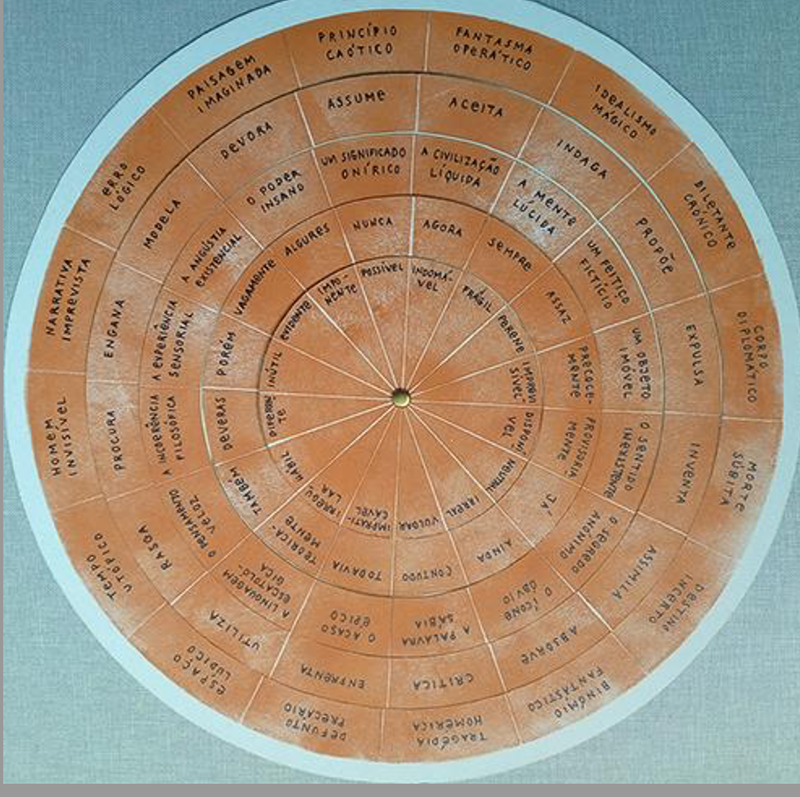 PRINCÍPIO
CAÓTICO
FANTASMA
OPERÁTICO
IDEALISMO
MÁGICO
DILETANTE
CRÓNICO
CORPO
DIPLOMÁTICO
MORTE
SÚBITA
DESTINO
INCERTO
BINÓMIO
FANTÁSTICO
TRAGÉDIA
HOMÉRICA
DEFUNTO
PRECÁRIO
ESPAÇO
LÚDICO
TEMPO
UTÓPICO
HOMEM
INVISÍVEL
NARRATIVA
IMPREVISTA
ERRO
LÓGICO
PAISAGEM
IMAGINADA
ASSUME
ACEITA
INDAGA
PROPÕE
EXPULSA
INVENTA
ASSIMILA
ABSORVE
CRITICA
ENFRENTA
UTILIZA
RASGA
PROCURA
ENGANA
MODELA
DEVORA
UM SIGNIFICADO
ONÍRICO
A CIVILIZAÇÃO
LÍQUIDA
A MENTE
LÚCIDA
UM FEITIÇO
FICTÍCIO
UM OBJETO
IMÓVEL
O SENTIDO
INEXISTENTE
O SEGREDO
ANÓNIMO
O ÍCONE
ÓBVIO
A PALAVRA
SÁBIA
O ACASO
ÉPICO
A LINGUAGEM
ESCATOLÓ-
GICA
O PENSAMENTO
VELOZ
A INCOERÊNCIA
FILOSÓFICA
A EXPERIÊNCIA
SENSORIAL
A ANGÚSTIA
EXISTENCIAL
O PODER
INSANO
NUNCA
AGORA
SEMPRE
ASSAZ
PRECOCE-
MENTE
PROVISORIA
MENTE
JÁ
AINDA
CONTUDO
TODAVIA
TEORICA-
MENTE
TAMBÉM
DEVERAS
PORÉM
VAGAMENTE
ALGURES
POSSÍVEL
INDOMÁ-
VEL
FRÁGIL
PERENE
IMPREVI
SÍVEL
DISPONÍ
VEL
NEUTRAL
IRREAL
VULGAR
IMPRATI-
CÁVEL
IRREGU
LAR
HÁBIL
DIFEREN
TE
INÚTIL
EVIDENTE
IMPO-
NENTE